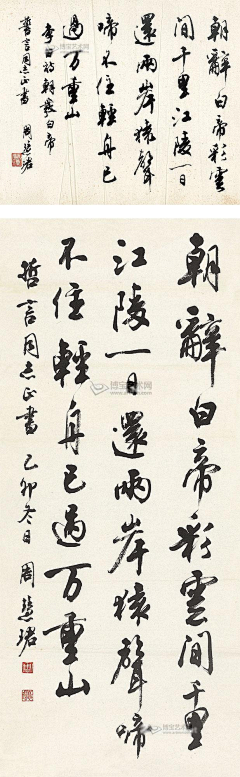 朝辭白帝彩雲
間千里江陵一日
還兩岸猿聲
啼不住輕舟已
過万重山
李白詩朝發白帝
哲言同志正書 周慧珺
朝辭白帝彩雲間千里
江陵一日還兩岸猿聲啼
不住輕舟已過万重山
哲言同志正書 己卯冬日 周慧珺
博宝艺术网